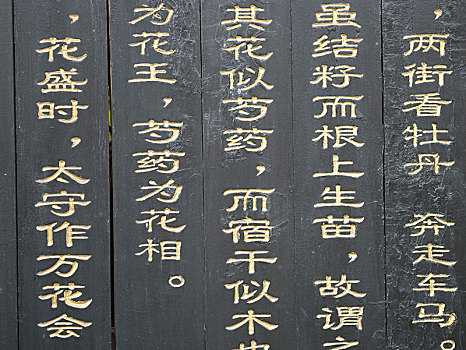 ，两街看牡丹 奔走车马。
虽结籽而根上生苗，故谓之
其花似芍药，而宿干似木也
为花王，芍药为花相。
，花盛时，太守作万花会